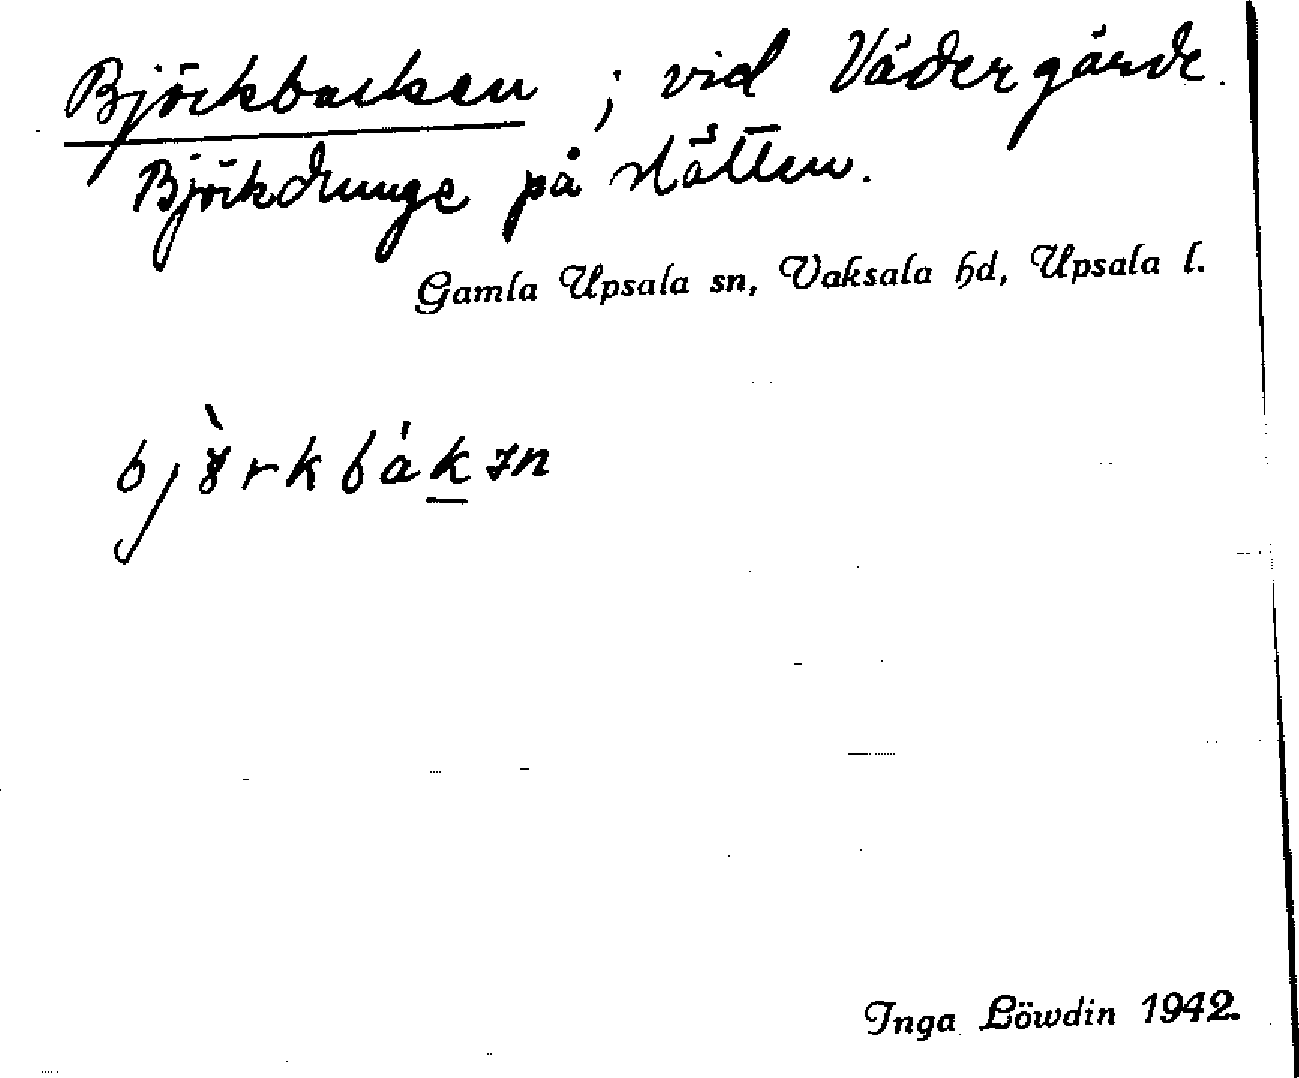 Björkbacken ; vid Vädergärde.
Björkdunge på slätten.
Gamla Upsala sn, Vaksala hd, Upsala l.
Inga Löwdin 1942.